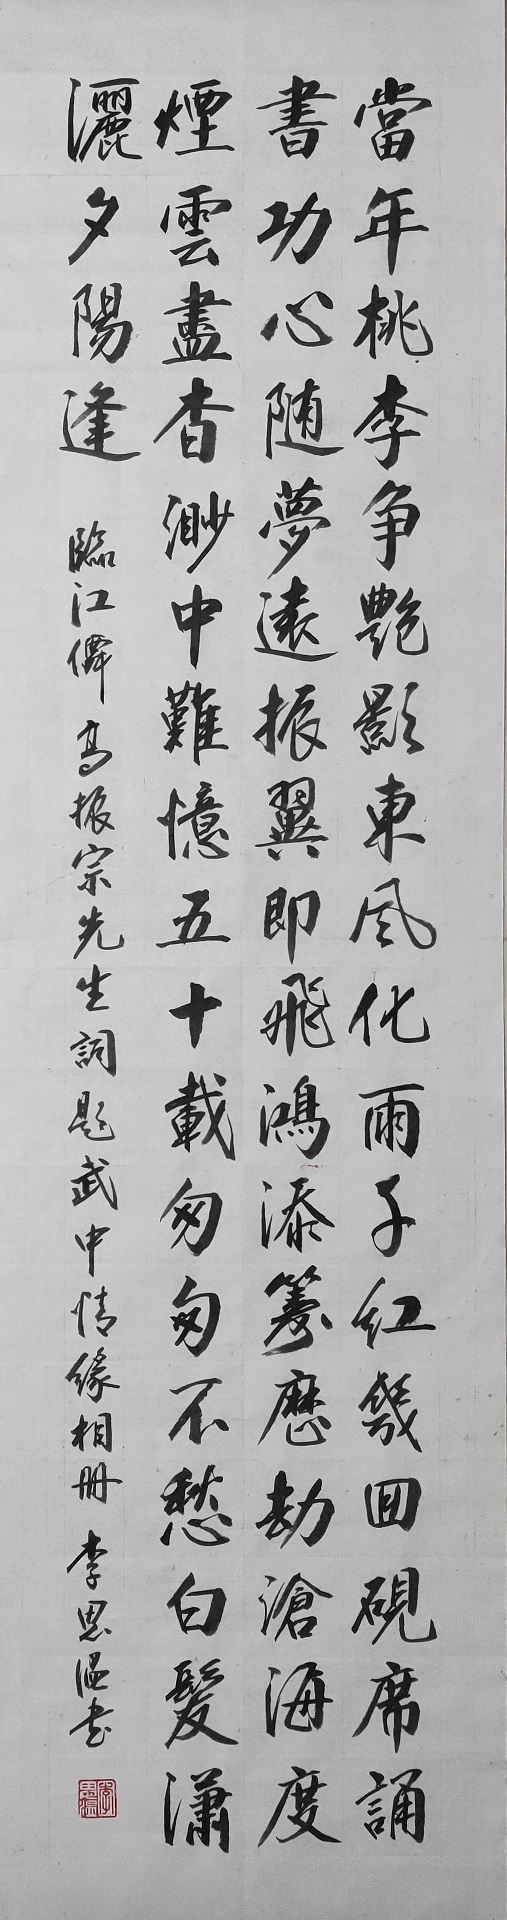 當年桃李争艷影東風化雨子紅幾回硯席誦
書功心随夢遠振翼即飛鴻添籌歷劫滄海度
煙雲盡杳渺中難憶五十載匆匆不愁白髮瀟
灑夕陽逢
臨江僊高振宗先生詞題武中情緣相册李思溫书